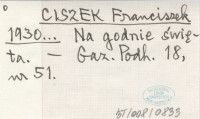 CISZEK Franciszek
1930... Na godnie świę-
ta. — Gaz. Podh. 18,
nr 51.
51/008/0833